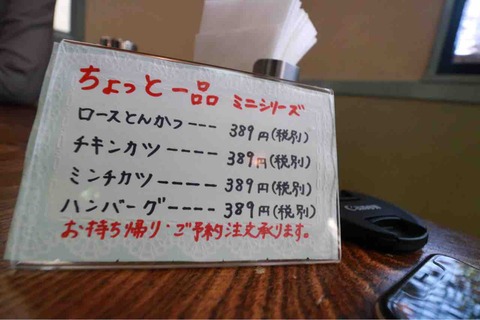 ちょっと一品 ミニシリーズ
ロースとんかつ --- 389円(税別)
チキンカツ ---- 389円(税別)
ミンチカツ ----- 389円(税別)
ハンバーグ ---- 389円(税別)
お持ち帰り・ご予約注文承ります。
Canon